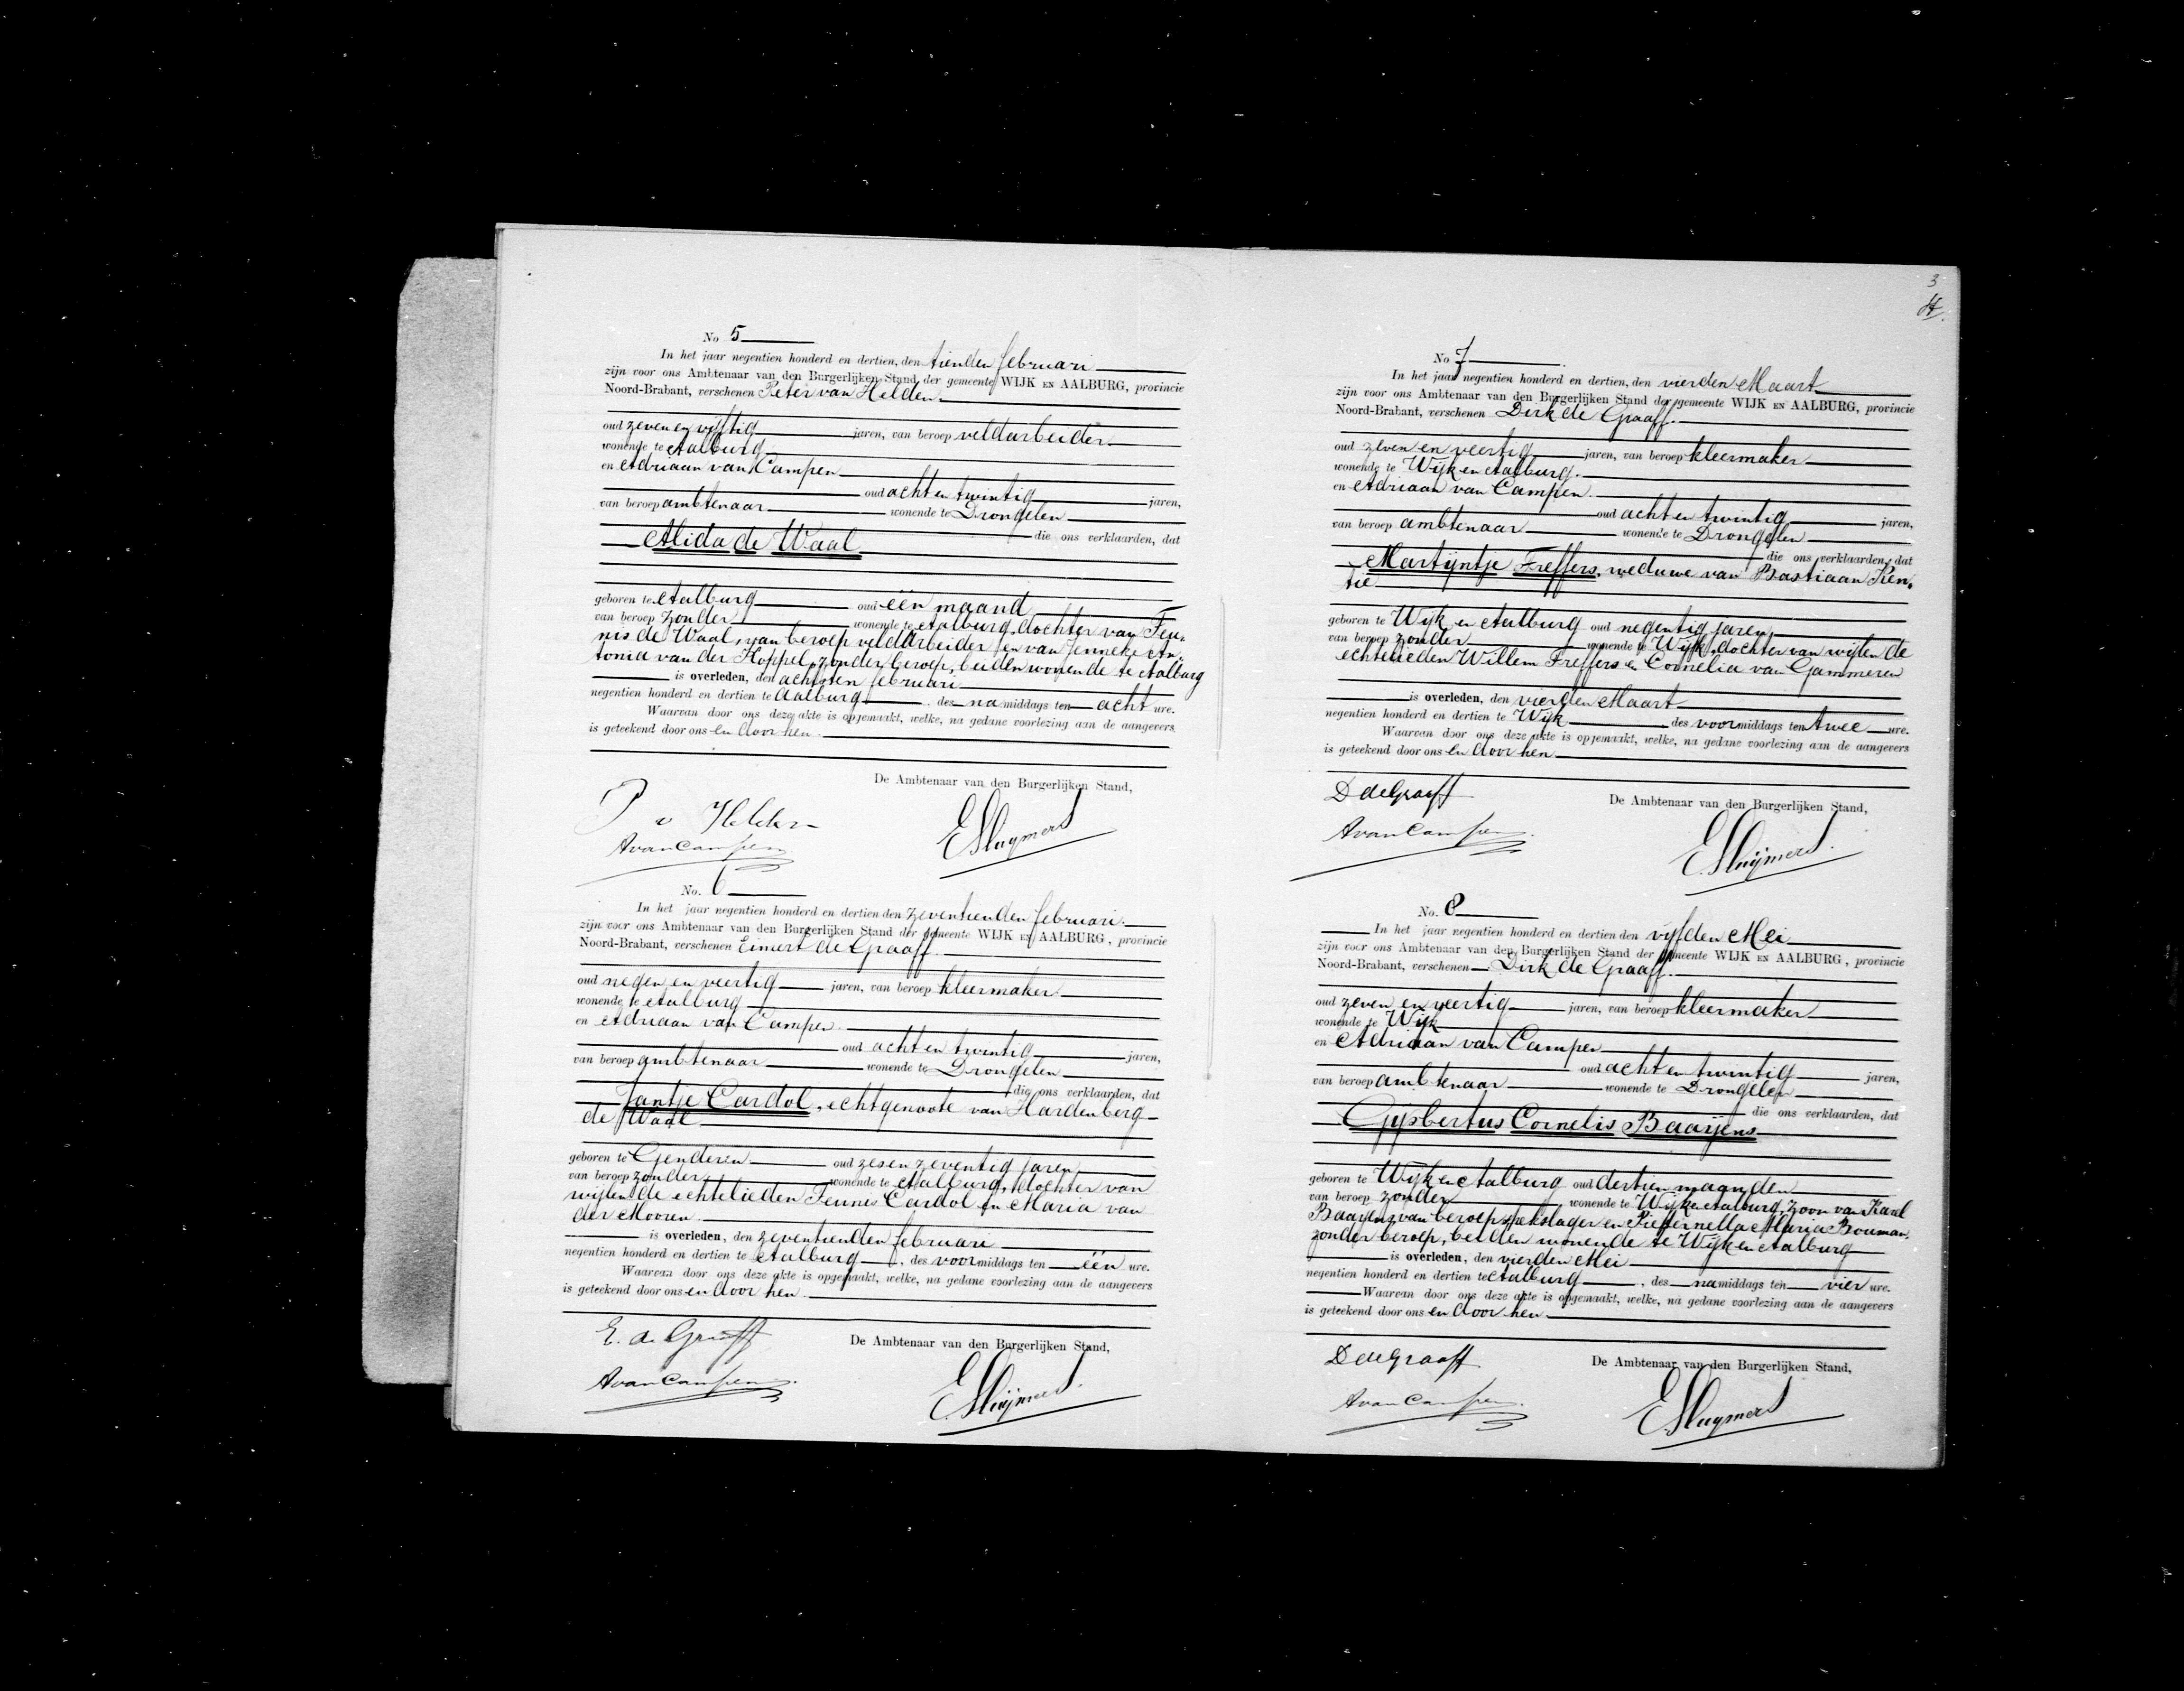 No 5
In het jaar negentien honderd en dertien, den tienden februari
zijn voor ons Ambtenaar van den Burgerlijken Stand der gemeente WIJK EN AALBURG, provincie
Noord-Brabant, verschenen Peter van Helden
oud zeven en vijftig jaren, van beroep veldarbeider
wonende te Aalburg
en Adriaan van Campen
oud acht en twintig jaren,
van beroep ambtenaar wonende te Drongelen
die ons verklaarden, dat
Alida de Waal
geboren te Aalburg oud één maand
van beroep zonder wonende te Aalburg, dochter van Teu-
nis de Waal, van beroep veldarbeider en van Jenneke An-
tonia van der Koppel, zonder beroep, beiden wonende te Aalburg
is overleden, den achtsten februari
negentien honderd en dertien te Aalburg, des namiddags ten acht ure.
Waarvan door ons deze akte is opgemaakt, welke, na gedane voorlezing aan de aangevers
is geteekend door ons en door hen.
De Ambtenaar van den Burgerlijken Stand,
P v Helden
A van Campen
E Sluymers
No. 6
In het jaar negentien honderd en dertien den zeventienden februari.
zijn voor ons Ambtenaar van den Burgerlijken Stand der gemeente WIJK EN AALBURG, provincie
Noord-Brabant, verschenen Eimert de Graaff.
oud negen en veertig jaren, van beroep kleermaker
wonende te Aalburg
en Adriaan van Campen.
oud acht en twintig jaren,
van beroep ambtenaar wonende te Drongelen
die ons verklaarden, dat
Jantje Cardol, echtgenoote van Hardenberg
de Waal
geboren te Genderen oud zes en zeventig jaren
van beroep zonder wonende te Aalburg, dochter van
wijlen de echtelieden Teunis Cardol en Maria van
der Mooren.
is overleden, den zeventienden februari
negentien honderd en dertien te Aalburg, des voormiddags ten één ure.
Waarvan door ons deze akte is opgemaakt, welke, na gedane voorlezing aan de aangevers
is geteekend door ons en door hen.
De Ambtenaar van den Burgerlijken Stand,
E. de Graaff
A van Campen
E Sluijmers
3
No 7
In het jaar negentien honderd en dertien, den vierden Maart
zijn voor ons Ambtenaar van den Burgerlijken Stand der gemeente WIJK EN AALBURG, provincie
Noord-Brabant, verschenen Dirk de Graaff.
oud zeven en veertig jaren, van beroep kleermaker
wonende te Wijk en Aalburg.
en Adriaan van Campen.
oud acht en twintig jaren,
van beroep ambtenaar wonende te Drongelen
die ons verklaarden, dat
Martijntje Treffers, weduwe van Bastiaan Kien-
tie
geboren te Wijk en Aalburg oud negentig jaren
van beroep zonder wonende te Wijk, dochter van wijlen de
echtelieden Willem Treffers en Cornelia van Gammeren
is overleden, den vierden Maart
negentien honderd en dertien te Wijk des voormiddags ten twee ure.
Waarvan door ons deze akte is opgemaakt, welke, na gedane voorlezing aan de aangevers
is geteekend door ons en door hen
De Ambtenaar van den Burgerlijken Stand,
D de Graaff
A van Campen.
E. Sluijmers.
No. 8
In het jaar negentien honderd en dertien den vijfden Mei
zijn voor ons Ambtenaar van den Burgerlijken Stand der gemeente WIJK EN AALBURG, provincie
Noord-Brabant, verschenen Dirk de Graaff.
oud zeven en veertig jaren, van beroep kleermaker
wonende te Wijk
en Adriaan van Campen
oud acht en twintig jaren,
van beroep ambtenaar wonende te Drongelen
die ons verklaarden, dat
Gijsbertus Cornelis Baaijens
geboren te Wijk en Aalburg oud dertien maanden
van beroep zonder wonende te Wijk en Aalburg, zoon van Karel
Baaijens, van beroep spekslager en Pieternella Maria Bouman,
zonder beroep, beiden wonende te Wijk en Aalburg
is overleden, den vierden Mei
negentien honderd en dertien te Aalburg, des namiddags ten vier ure.
Waarvan door ons deze akte is opgemaakt, welke, na gedane voorlezing aan de aangevers
is geteekend door ons en door hen.
De Ambtenaar van den Burgerlijken Stand,
D de Graaff
A van Campen.
E Sluymers